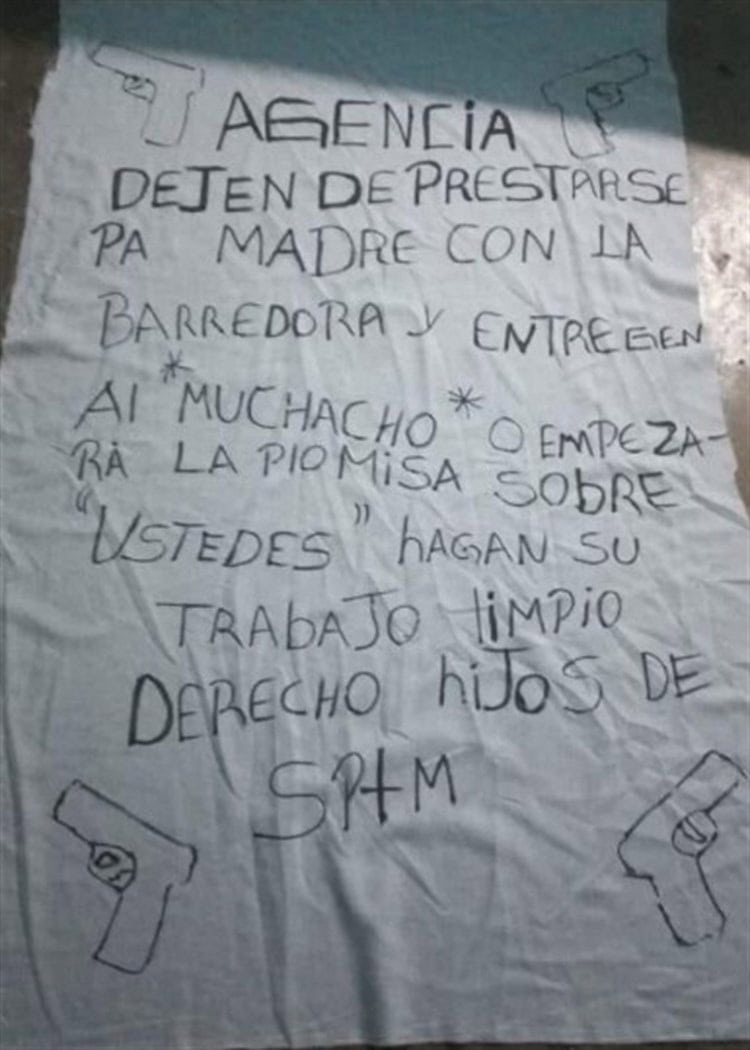 AGENCIA
DEJEN DE PRESTARSE
PA MADRE CON LA
BARREDORA Y ENTREGEN
AI *MUCHACHO* O EMPEZA-
RA LA PIOMISA SOBRE
"USTEDES" hAGAN SU
TRAbAJO LiMPiO
DERECHO hiJOS DE
SPtM